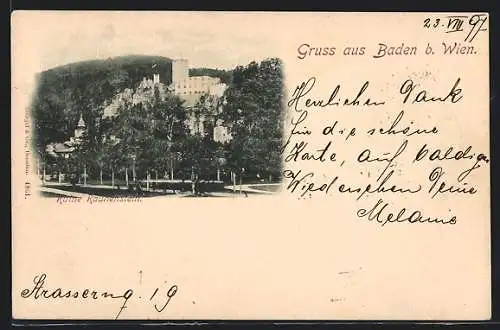 23. VIII 97
Gruss aus Baden b. Wien.
Herzlichen Dank
für die schöne
Karte, auf baldiges
Wiedersehen Deine
Melanie
Ruine Rauhenstein.
Strasserng. 19